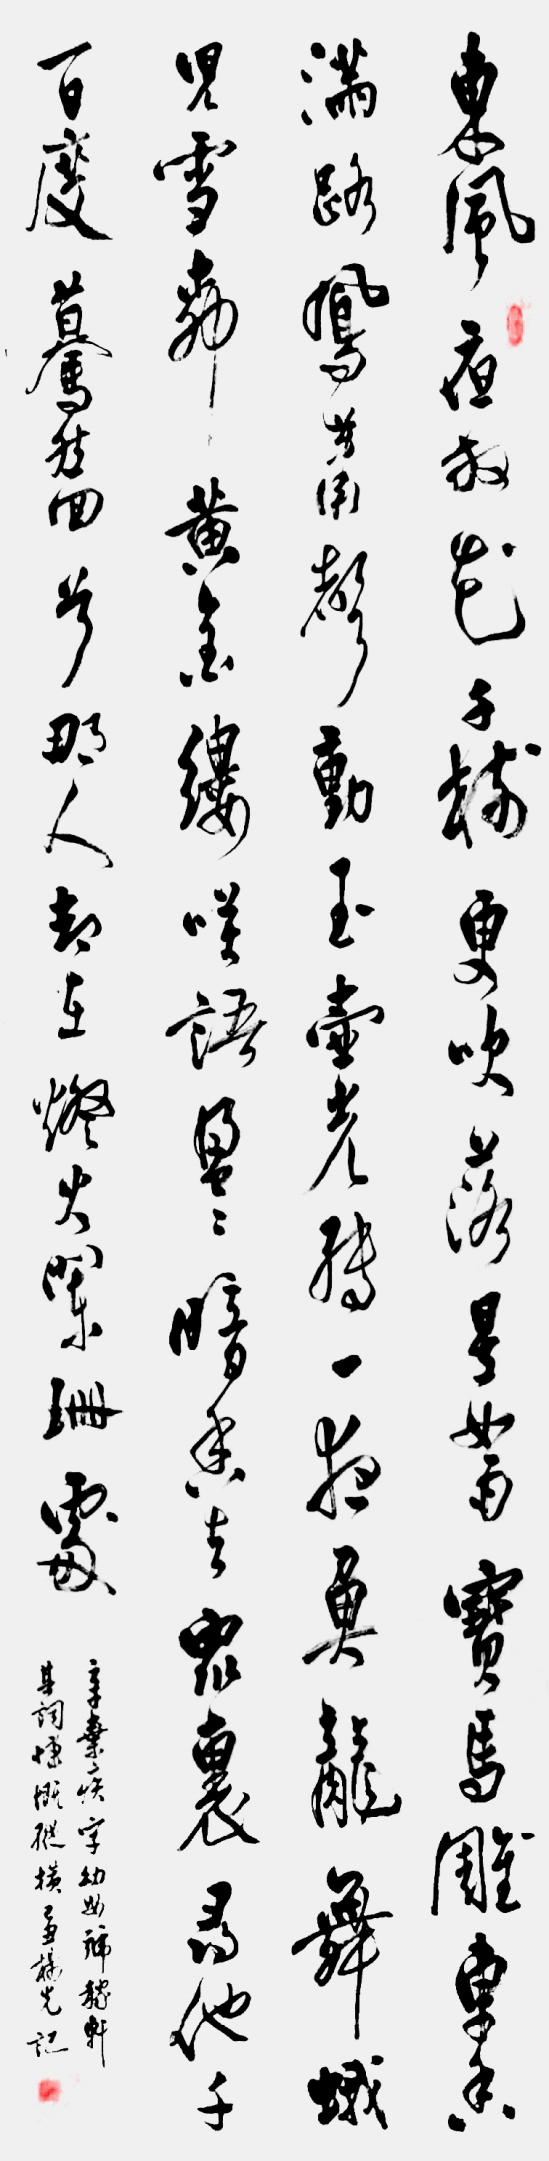 東風夜放花千樹更吹落星如雨寶馬雕車香
滿路鳳簫聲動玉壺光轉一夜魚龍舞蛾
兒雪柳黃金縷笑語盈々暗香去眾裏尋他千
百度驀然回首那人卻在燈火闌珊處
辛棄疾字幼安號稼軒
其詞慷慨縱橫